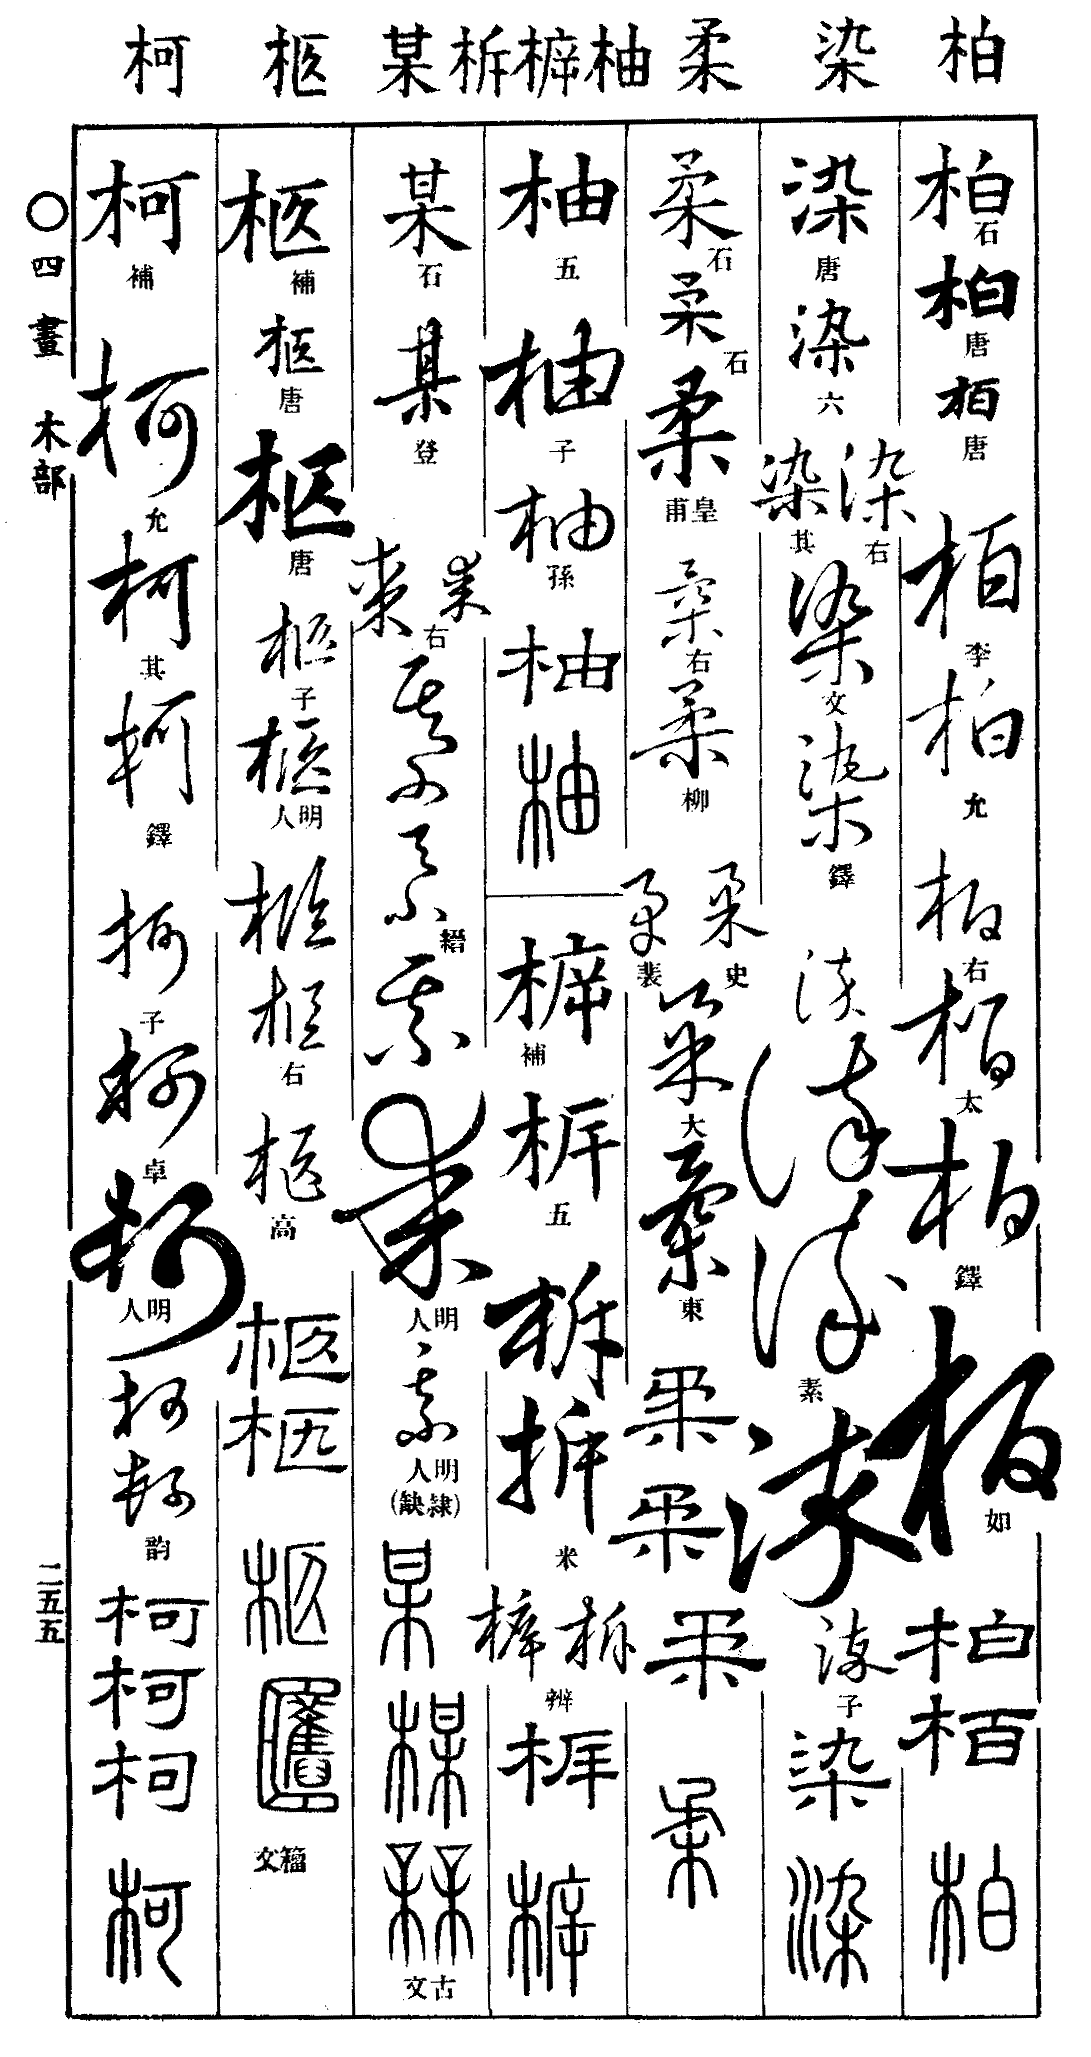 柏 染 柔 柚 𣔳 柝 某 柩 柯
柏 石 柏 唐 柏 唐 柏 李 柏 允 柏 右 柏 太 柏 鐸 柏 如 柏 柏 柏
染 唐 染 六 染 右 染 其 染 文 染 鐸 染 染 染 素 染 染 子 染 染
柔 石 柔 石 柔 皇甫 柔 右 柔 柳 柔 史 柔 裴 柔 大 柔 東 柔 柔 柔 柔
柚 五 柚 子 柚 孫 柚 柚
𣔳 補 柝 五 柝 柝 米 柝 𣔳 辨 柝 𣔳
某 石 某 登 某 某 右 某 某 縉 某 某 明人 某 明人 (隸缺) 某 某 某 古文
柩 補 柩 唐 柩 唐 柩 子 柩 明人 柩 柩 右 柩 高 柩 柩 柩 匶 籀文
柯 補 柯 允 柯 其 柯 鐸 柯 子 柯 卓 柯 明人 柯 柯 韵 柯 柯 柯 柯
〇四畫 木部
二五五